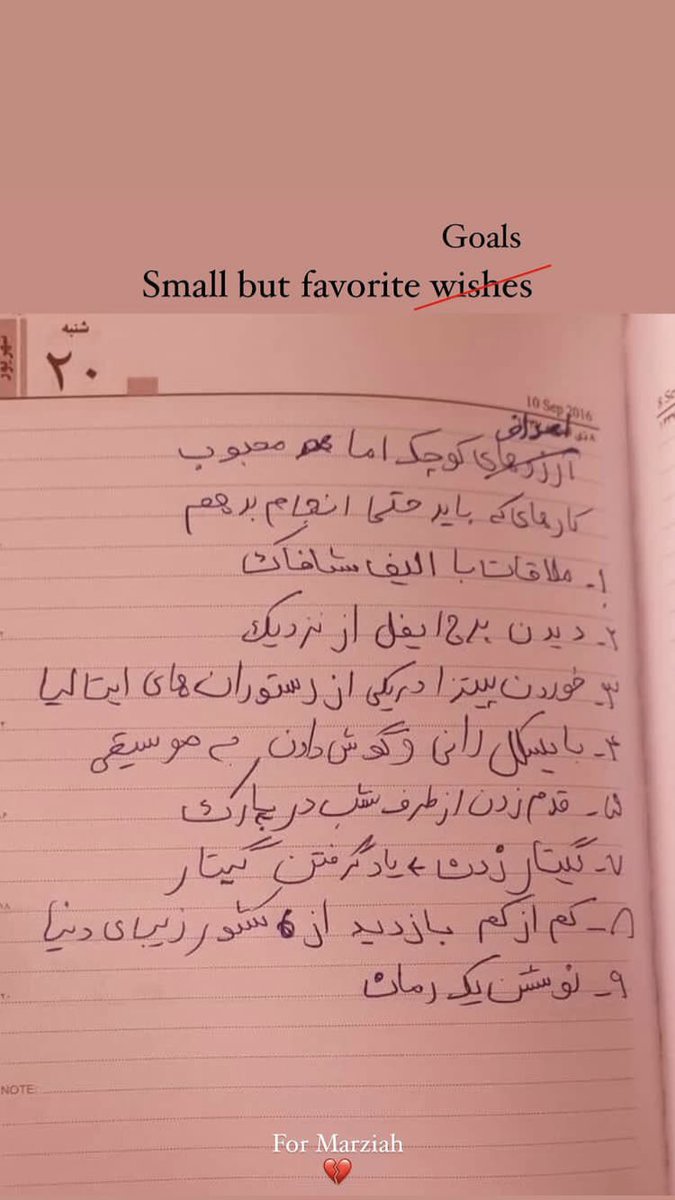 Goals
Small but favorite wishes
شهریور
شنبه
۲۰
10 Sep 2016
اهداف
آرزوهای کوچک اما محبوب
کارهای که باید حتما انجام بدهم
۱- ملاقات با الیف شافاک
۲- دیدن برج ایفل از نزدیک
۳- خوردن پیتزا در یکی از رستوران های ایتالیا
۴- بایسکل رانی و گوش دادن به موسیقی
۵- قدم زدن از طرف شب در پارک
۷- گیتار زدن ← یاد گرفتن گیتار
۸- کم از کم بازدید از 6 کشور زیبای دنیا
۹- نوشتن یک رمان
NOTE:
For Marziah
💔